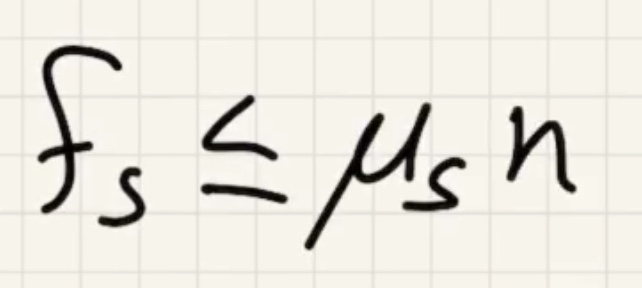 fₛ ≤ μₛ n